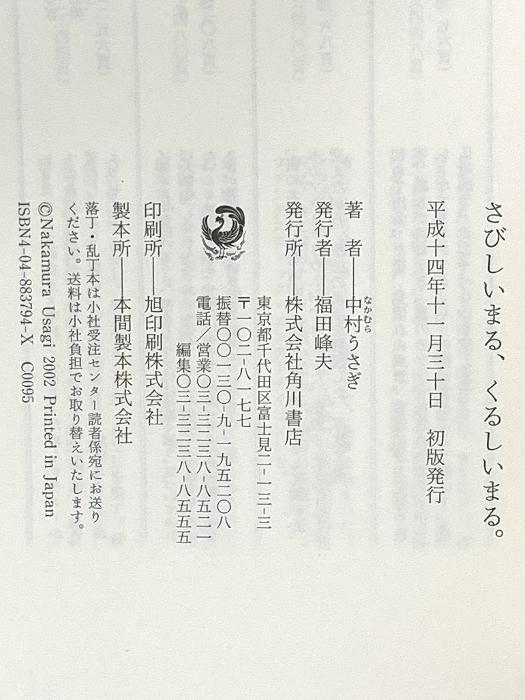 さびしいまる、くるしいまる。
平成十四年十一月三十日　初版発行
著　者――中村うさぎ
なかむら
発行者――福田峰夫
発行所――株式会社角川書店
東京都千代田区富士見二-一三-三
〒一〇二-八一七七
振替〇〇一三〇-九-一九五二〇八
電話／営業〇三-三二三八-八五二一
編集〇三-三二三八-八五五五
印刷所――旭印刷株式会社
製本所――本間製本株式会社
落丁・乱丁本は小社受注センター読者係宛にお送り
ください。送料は小社負担でお取り替えいたします。
©Nakamura Usagi 2002 Printed in Japan
ISBN4-04-883794-X　C0095